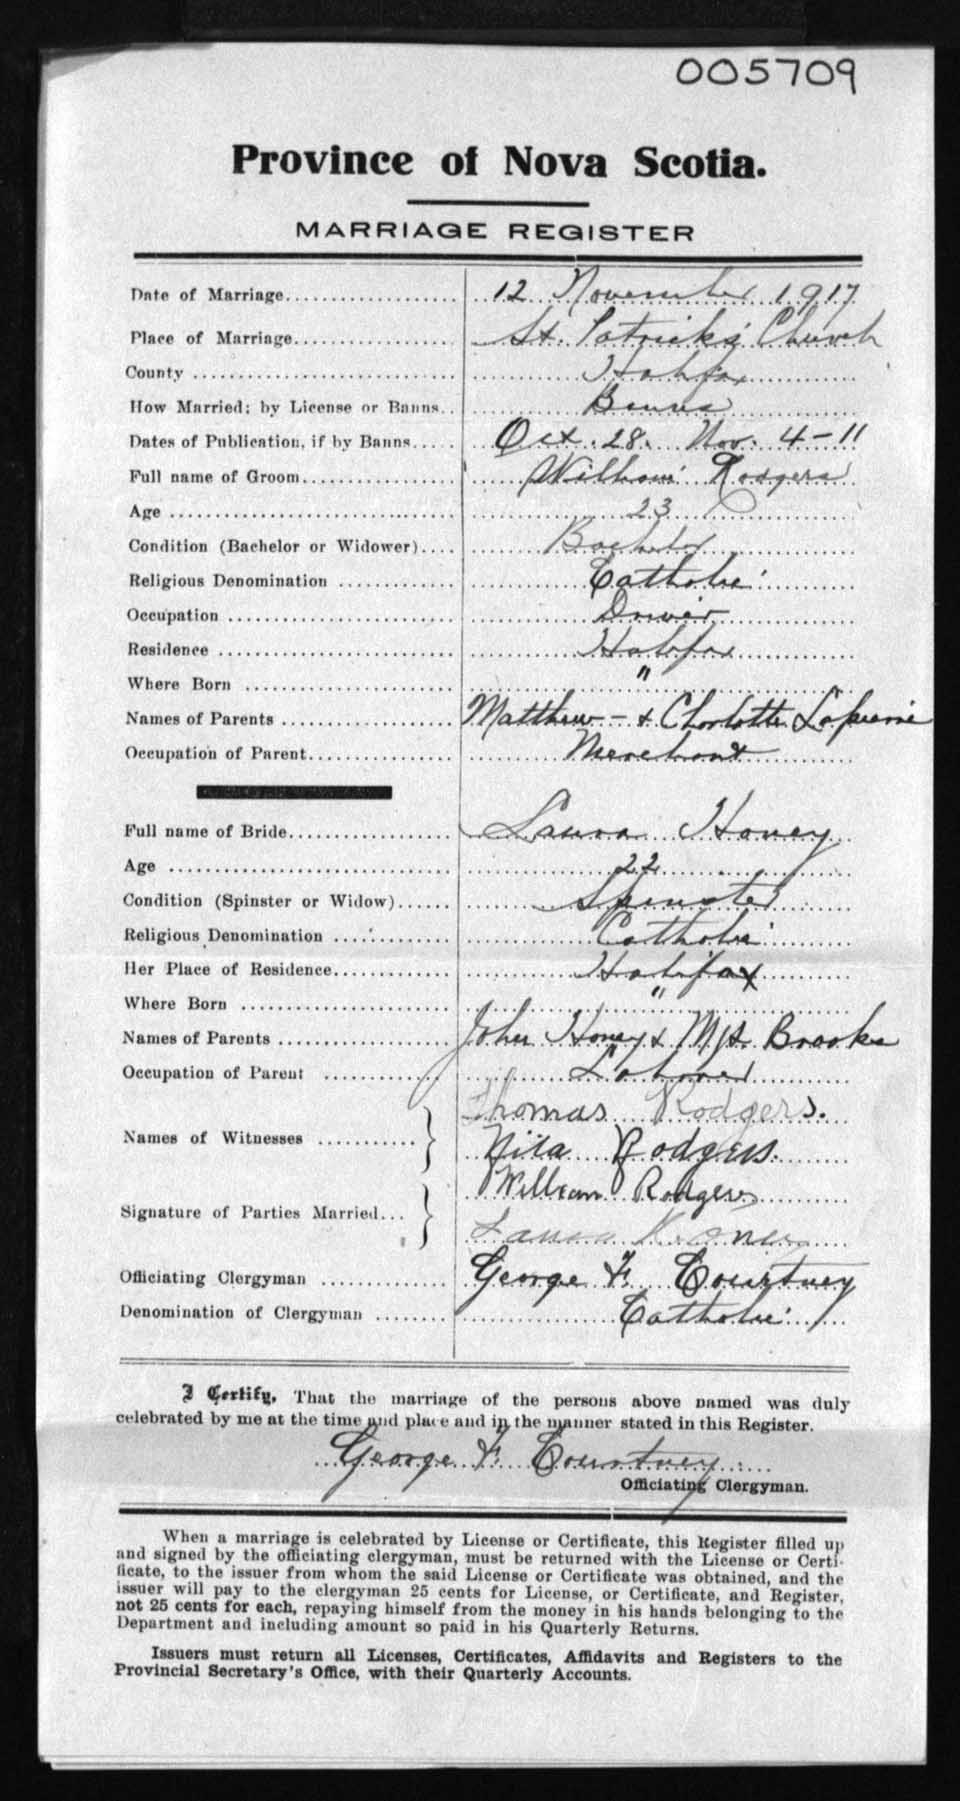 005709
Province of Nova Scotia.
MARRIAGE REGISTER
Date of Marriage 12 November 1917
Place of Marriage St. Patrick's Church
County Halifax
How Married; by License or Banns Banns
Dates of Publication, if by Banns Oct. 28. Nov. 4-11
Full name of Groom William Rodgers
Age 23
Condition (Bachelor or Widower) Bachelor
Religious Denomination Catholic
Occupation Driver
Residence Halifax
Where Born "
Names of Parents Matthew - & Charlotte Lapierre
Occupation of Parent Merchant
Full name of Bride Laura Honey
Age 22
Condition (Spinster or Widow) Spinster
Religious Denomination Catholic
Her Place of Residence Halifax
Where Born "
Names of Parents John Honey & Brooks
Occupation of Parent Laborer
Names of Witnesses Thomas Rodgers.
Rodgers.
Signature of Parties Married William Rodgers
Laura Honey
Officiating Clergyman George F. Courtney
Denomination of Clergyman Catholic
I Certify, That the marriage of the persons above named was duly
celebrated by me at the time and place and in the manner stated in this Register.
George F. Courtney
Officiating Clergyman.
When a marriage is celebrated by License or Certificate, this Register filled up
and signed by the officiating clergyman, must be returned with the License or Certi-
ficate, to the issuer from whom the said License or Certificate was obtained, and the
issuer will pay to the clergyman 25 cents for License, or Certificate, and Register,
not 25 cents for each, repaying himself from the money in his hands belonging to the
Department and including amount so paid in his Quarterly Returns.
Issuers must return all Licenses, Certificates, Affidavits and Registers to the
Provincial Secretary's Office, with their Quarterly Accounts.